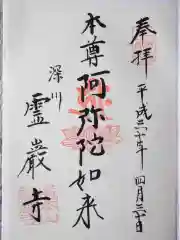 奉拝
平成三十年四月三十日
本尊阿弥陀如来
深川
霊巌寺